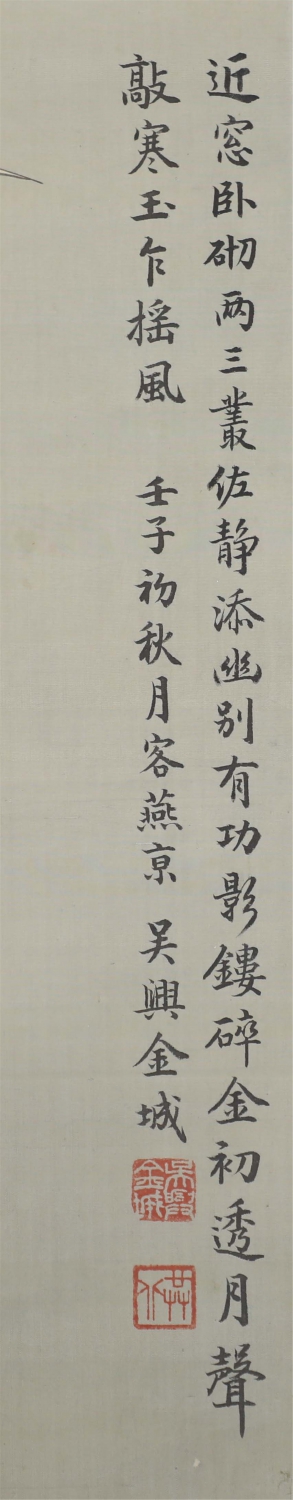 近窓卧砌两三叢佐静添幽别有功影鏤碎金初透月聲
敲寒玉乍摇風　壬子初秋月客燕京　吴興金城
吴興金城